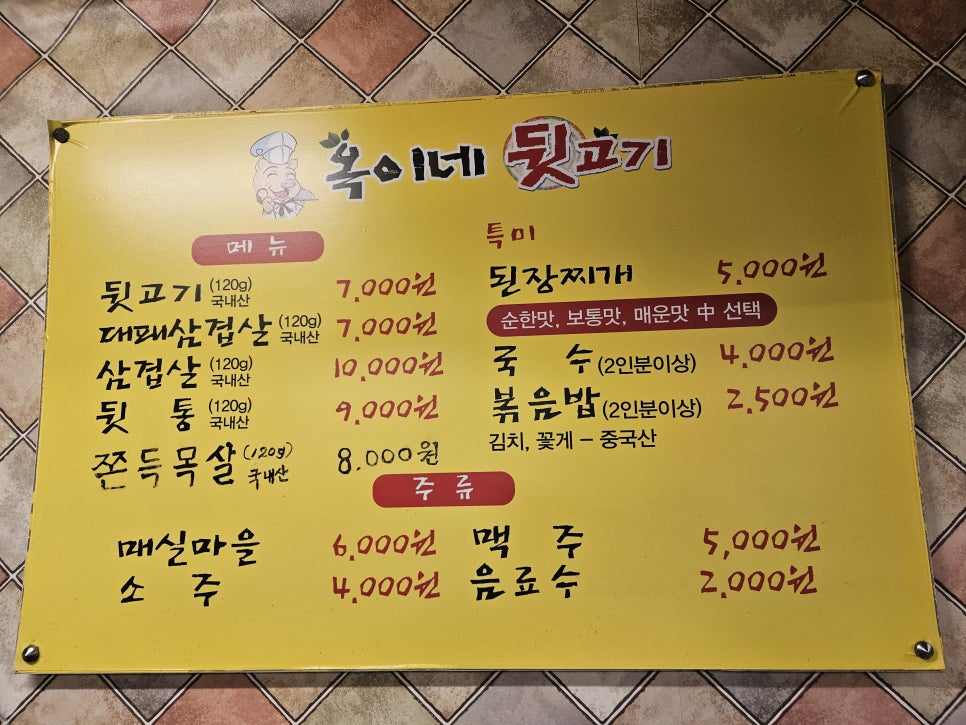 옥이네 뒷고기
메뉴
뒷고기 (120g) 국내산 7.000원
대패삼겹살 (120g) 국내산 7.000원
삼겹살 (120g) 국내산 10.000원
뒷통 (120g) 국내산 9.000원
쫀득목살 (120g) 국내산 8.000원
특미
된장찌개 5.000원
순한맛, 보통맛, 매운맛 中 선택
국수 (2인분이상) 4.000원
볶음밥 (2인분이상) 2.500원
김치, 꽃게 – 중국산
주류
매실마을 6.000원
소주 4.000원
맥주 5,000원
음료수 2.000원